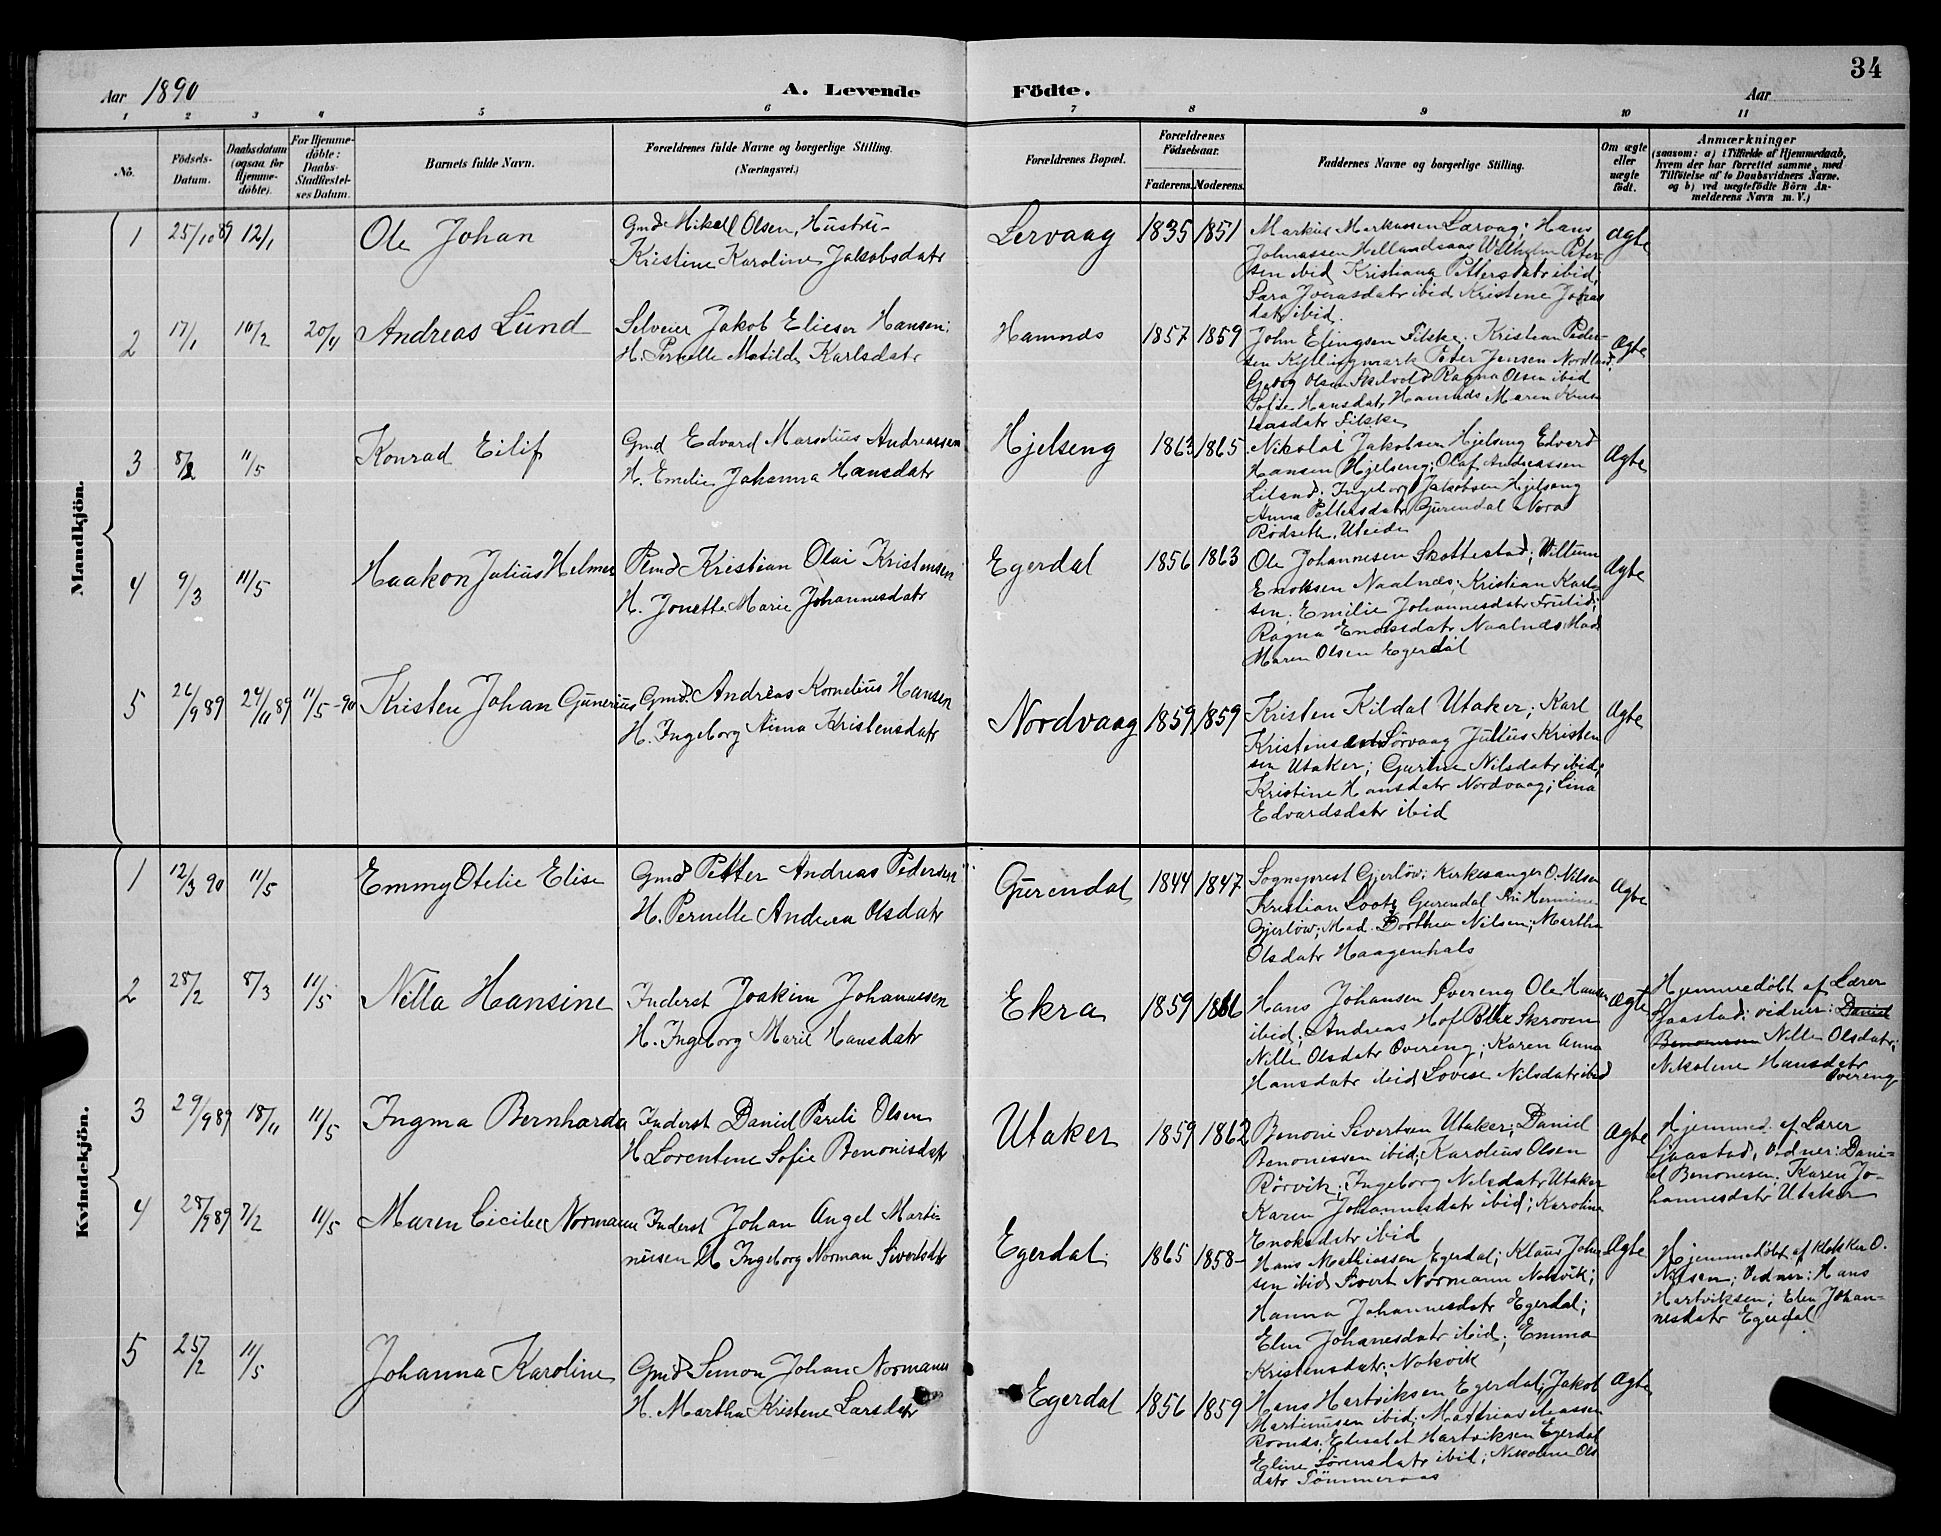 34
Aar 1890
A. Levende Födte.
Aar
1 2 3 4 5 6 7 8 9 10 11
No.
Födsels-Datum.
Daabsdatum (ogsaa for Hjemme-döbte).
For Hjemme-döbte: Daabs-Stadfæstelses Datum.
Barnets fulde Navn.
Forældrenes fulde Navne og borgerlige Stilling. (Næringsvei.)
Forældrenes Bopæl.
Forældrenes Födselsaar.
Faderens. Moderens.
Faddernes Navne og borgerlige Stilling.
Om ægte eller uægte födt.
Anmærkninger
(saasom: a) i Tilfælde af Hjemmedaab,
hvem der har forrettet samme, med
Tilföielse af to Daabsvidners Navne,
og b) ved uægtefödte Börn An-
melderens Navn m. V.)
Mandkjön.
1 25/10 89 12/1 Ole Johan
Gmd Mikal Olsen, Hustru
Kristine Karoline Jakobsdatr
Lervaag 1835 1851
Markus Markussen Lærvaag; Hans
Johnassen Hellandsaas Wilhelm Peter-
sen ibid Kristiana Pettersdatr ibid,
Sara Jonasdatr ibid Kristene Johas
datr ibid.
Ægte
2 17/1 10/2 20/4 Andreas Lund
Selveier Jakob Elieser Hansen;
H. Pernelle Matilde Karlsdatr
Hamnds 1857 1859
John Elingsen Filske; Kristian Peder-
sen Kyllingmark Peter Jensen Nordland;
Georg Olsen Skelvold Ragna Olsen ibid
Sofie Hansdatr Hamnds Maren
datr Filske
Ægte
3 8/2 11/5 Konrad Eilif
Gmd Edvard Marselius Andreassen
H. Emelie Johanna Hansdatr
Hjelseng 1863 1865
Nikolai Jakobsen Hjelseng Edvard
Hansen Hjelseng; Olaf Andreassen
Liland. Ingeborg Jakobsen Hjelseng
Anna Pettersdatr Gurendal Nora
Rødseth, Uteide
Ægte
4 9/3 11/5 Haakon Julius Helmer
Pmd Kristian Olai Kristensen
H. Jonette Marie Johannesdatr
Egerdal 1856 1863
Ole Johannesen Skottestad; Villum
Enoksen Naalnæs; Kristian Karl-
sen; Emilie Johannesdatr Frulid;
Ragna Enoksdatr Naalnæs Mad
Maren Olsen Egerdal
Ægte
5 26/9 89 24/11 89 11/5-90 Kristen Johan Gunerius
Gmd. Andreas Kornelius Hansen
H. Ingeborg Anna Kristensdatr
Nordvaag 1859 1859
Kristen Kildal Utaker; Karl
Kristensen Sørvaag Julius Kristen
sen Utaker; Gurine Nilsdatr ibid;
Kristine Hansdatr Nordvaag; Lina
Edvardsdatr ibid
Ægte
Kvindekjön.
1 12/3 90 11/5 Emmy Otelie Elise
Gmd Petter Andreas Pedersen
H. Pernelle Andrea Olsdatr
Gurendal 1844 1847
Sogneprest Gjerløv; Kirkesanger O. Nilsen
Kristian Loots Gurendal Fru Hermine
Gjerløw; Mad. Dorthea Nilsen; Martha
Olsdatr Haagenhals
Ægte
2 28/2 8/3 11/5 Nella Hansine
Inderst Joakim Johannesen
H. Ingeborg Marie Hansdatr
Ekra 1859 1866
Hans Johansen Øvereng Ole Hansen
ibid; Andreas Hof Blix Skroven
Nille Olsdatr Øvereng; Karen Anna
Hansdatr ibid Lovise Nilsdatr ibid
Ægte
Hjemmedøbt af Lærer
Sjaastad; vidner: Daniel
Benonesen Nille Olsdatr;
Nikoline Hansdatr
Øvereng
3 29/9 89 18/11 11/5 Ingma Bernharda
Inderst Daniel Pareli Olsen
H Lorentene Sofie Benonisdatr
Utaker 1859 1862
Benoni Sivertsen Utaker; Daniel
Benonessen ibid; Karolius Olsen
Rørvik; Ingeborg Nilsdatr Utaker
Karen Johannesdatr ibid; Karoline
Enoksdatr ibid
Ægte
Hjemmed. af Lærer
Sjaastad, Vidner: Dani-
el Benonesen; Karen Jo-
hannesdatr Utaker
4 28/9 89 7/2 11/5 Maren Cicilie Normann
Inderst Johan Angel Marti-
niusen H Ingeborg Norman Sivertsdtr
Egerdal. 1865 1858-
Hans Mathiassen Egerdal; Klaus Johan
sen ibid Sivert Normann Nokvik;
Hanna Johannesdatr Egerdal;
Elen Johanesdatr ibid; Emma
Kristensdatr; Nokvik
Ægte
Hjemmedøbt af Klokker O.
Nilsen; Vidner: Hans
Hartviksen; Elen Johan-
nesdatr Egerdal
5 25/2 11/5 Johanna Karoline
Gmd Semon Johan Normann
H. Martha Kristene Larsdatr
Egerdal 1856 1859
Hans Hartviksen Egerdal; Jakob
Martinusen ibid; Mathias
Elisabet Hartviksen Egerdal
Eline Sørensdatr ibid; Nikoline Ols
datr Tømmeraas
Ægte